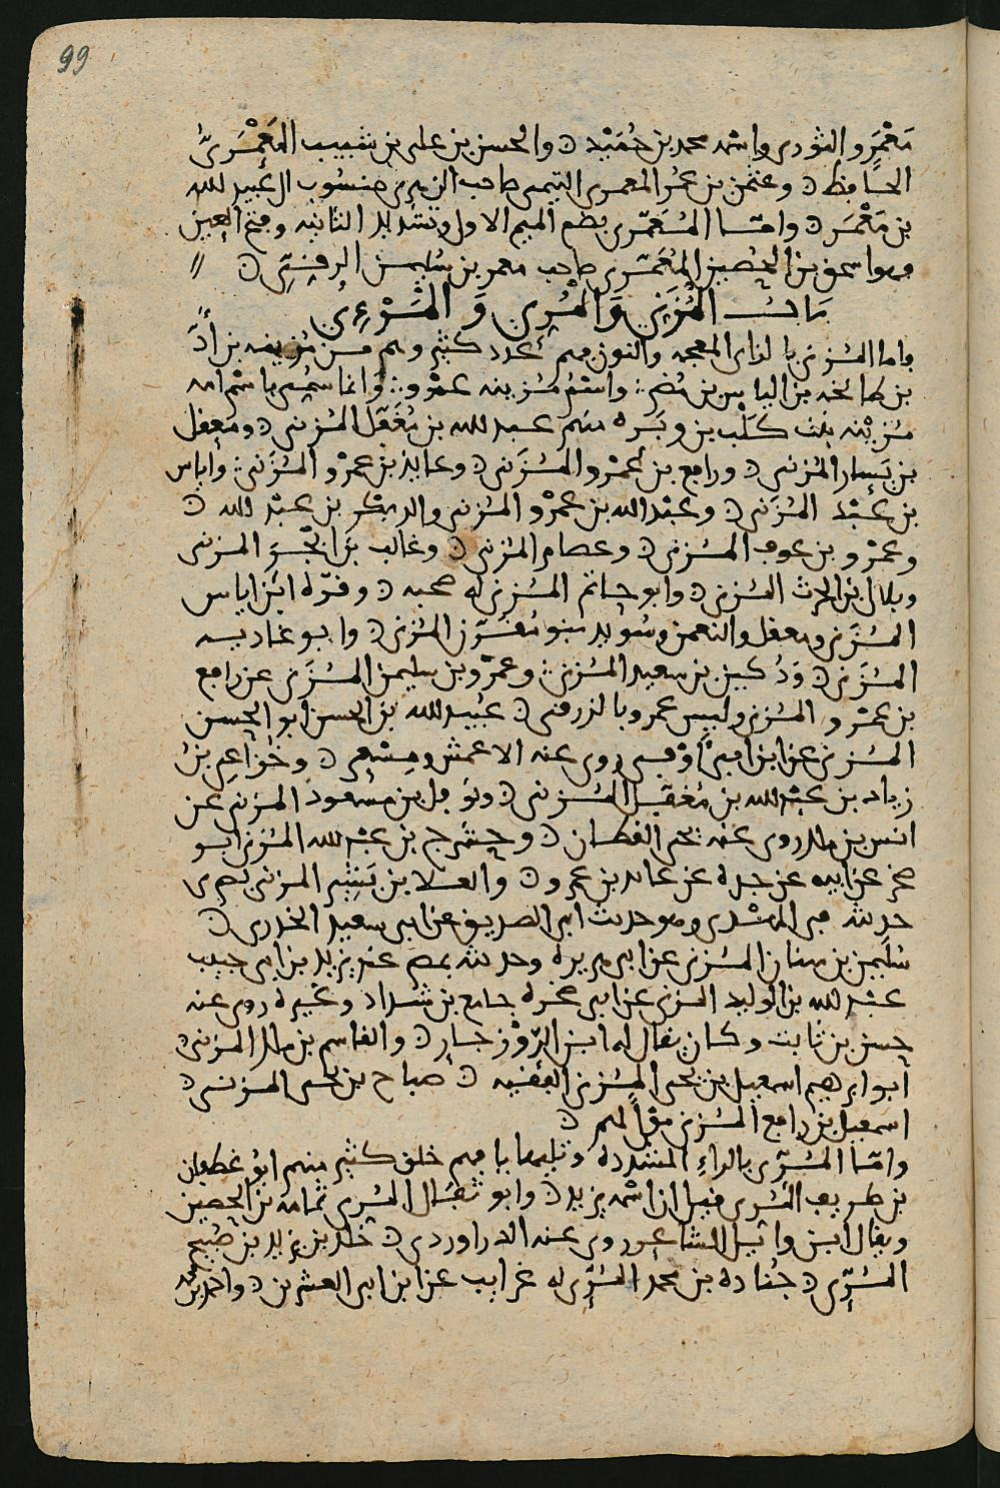 99
مَعْمَر والثوري واسمه محمد بن حُمَيْد ۞ والحسن بن علي بن شبيب المَعْمَريُّ
الحافظ ۞ وعثمن بن عمر المعمري التيمي صاحب الزهري منسوب الى عبيد الله
بن مَعْمَر ۞ وامّا المُعَمّري بضم الميم الاولى وتشديد الثانيه وفتح العين
فهو اسحق بن الحُصين المُعَمّري صاحب معمر بن سُليمن الرقي ۞
بَابُ المُزَنِي وَالمُرِي وَ المَرْءِي
فاما المُزني بالزاي المعجمه والنون فهم عدد كثير وهم من مُزينه بن أُدّ
بن طابخه بن الياس بن مُضر واسم مُزينه عمرو وانما سمي باسم امه
مُزَيْنه بنت كَلْب بن وبَره منهم عبد الله بن مُغَفّل المُزني ۞ ومعقل
بن يَسار المُزني ۞ ورافع بن عَمرو المُزَني ۞ وعايذ بن عمرو المُزَني واياس
بن عَبْد المُزَني ۞ وعَبْد الله بن عمرو المُزني والد بكر بن عبْد الله ۞
وعمرو بن عوف المُزني ۞ وعصام المُزني ۞ وغالب بن ابْجَرَ المزني
وبلال بن الحرث المُزني ۞ وابو حاتم المُزني له صحبه ۞ وقرّه ابن اياس
المُزَني ومعقل والنعمن وسُويد بنو مُقَرّن المُزني ۞ وابو غاديه
المُزَني ۞ وَدُكين بن سعيد المُزني وعمرو بن سليمن المُزَني عن رافع
بن عمرو المُزني وليس عمرو بالزرقي ۞ عُبيد الله بن الحسن ابو الحسن
المُزني عن ابن ابي أوْفى روى عنه الاعمش ومِسْعر ۞ وخُزاعي بنُ
زياد بن عبْد الله بن مُغفّل المُزني ۞ ونوفل بن مسعود المزني عن
انس بن ملك روى عنه يحيى القطان ۞ وحشرج بن عبْد الله المُزني ابو
عن ابيه عن جده عن عايد بن عمرو ۞ والعلا بن بَشير المزني بَصري
حديثه في المهْدي وهو حديث ابي الصديق عن ابي سعيد الخدري ۞
سُلَيمن بن سنان المُزني عن ابي هريره وحديثه بمصر عند يزيد بن ابي حبيب
عبْد الله بن الوليد المزني عن ابي صخره جامع بن شدّاد وغيره روى عنه
حسن بن ثابت وكان يقال له ابن الرّوْزجار ۞ والقاسم بن ملك المزني ۞
ابو ابرهيم اسمعيل بن يحيى المُزني الفقيه ۞ صباح بن يحيى المزني ۞
اسمعيل بن رافع المُزني مولاً لهم ۞
وامّا المُرّي بالراءِ المشدده وتليها يا فهم خلق كثير منهم ابُو غطفان
بن طريف المُري قيل ان اسْمه يزيد ۞ وابو ثِفَال المُري ثمامه بن الحصين
ويقال ابن وايل الشاعر روى عنه الدراوردي ۞ خالد بن يزيد بن صُبَيح
المُرّي ۞ جُناده بن محمد المُرّي له غرايب عن ابن ابي العشرين ۞ واحمد بن محمد